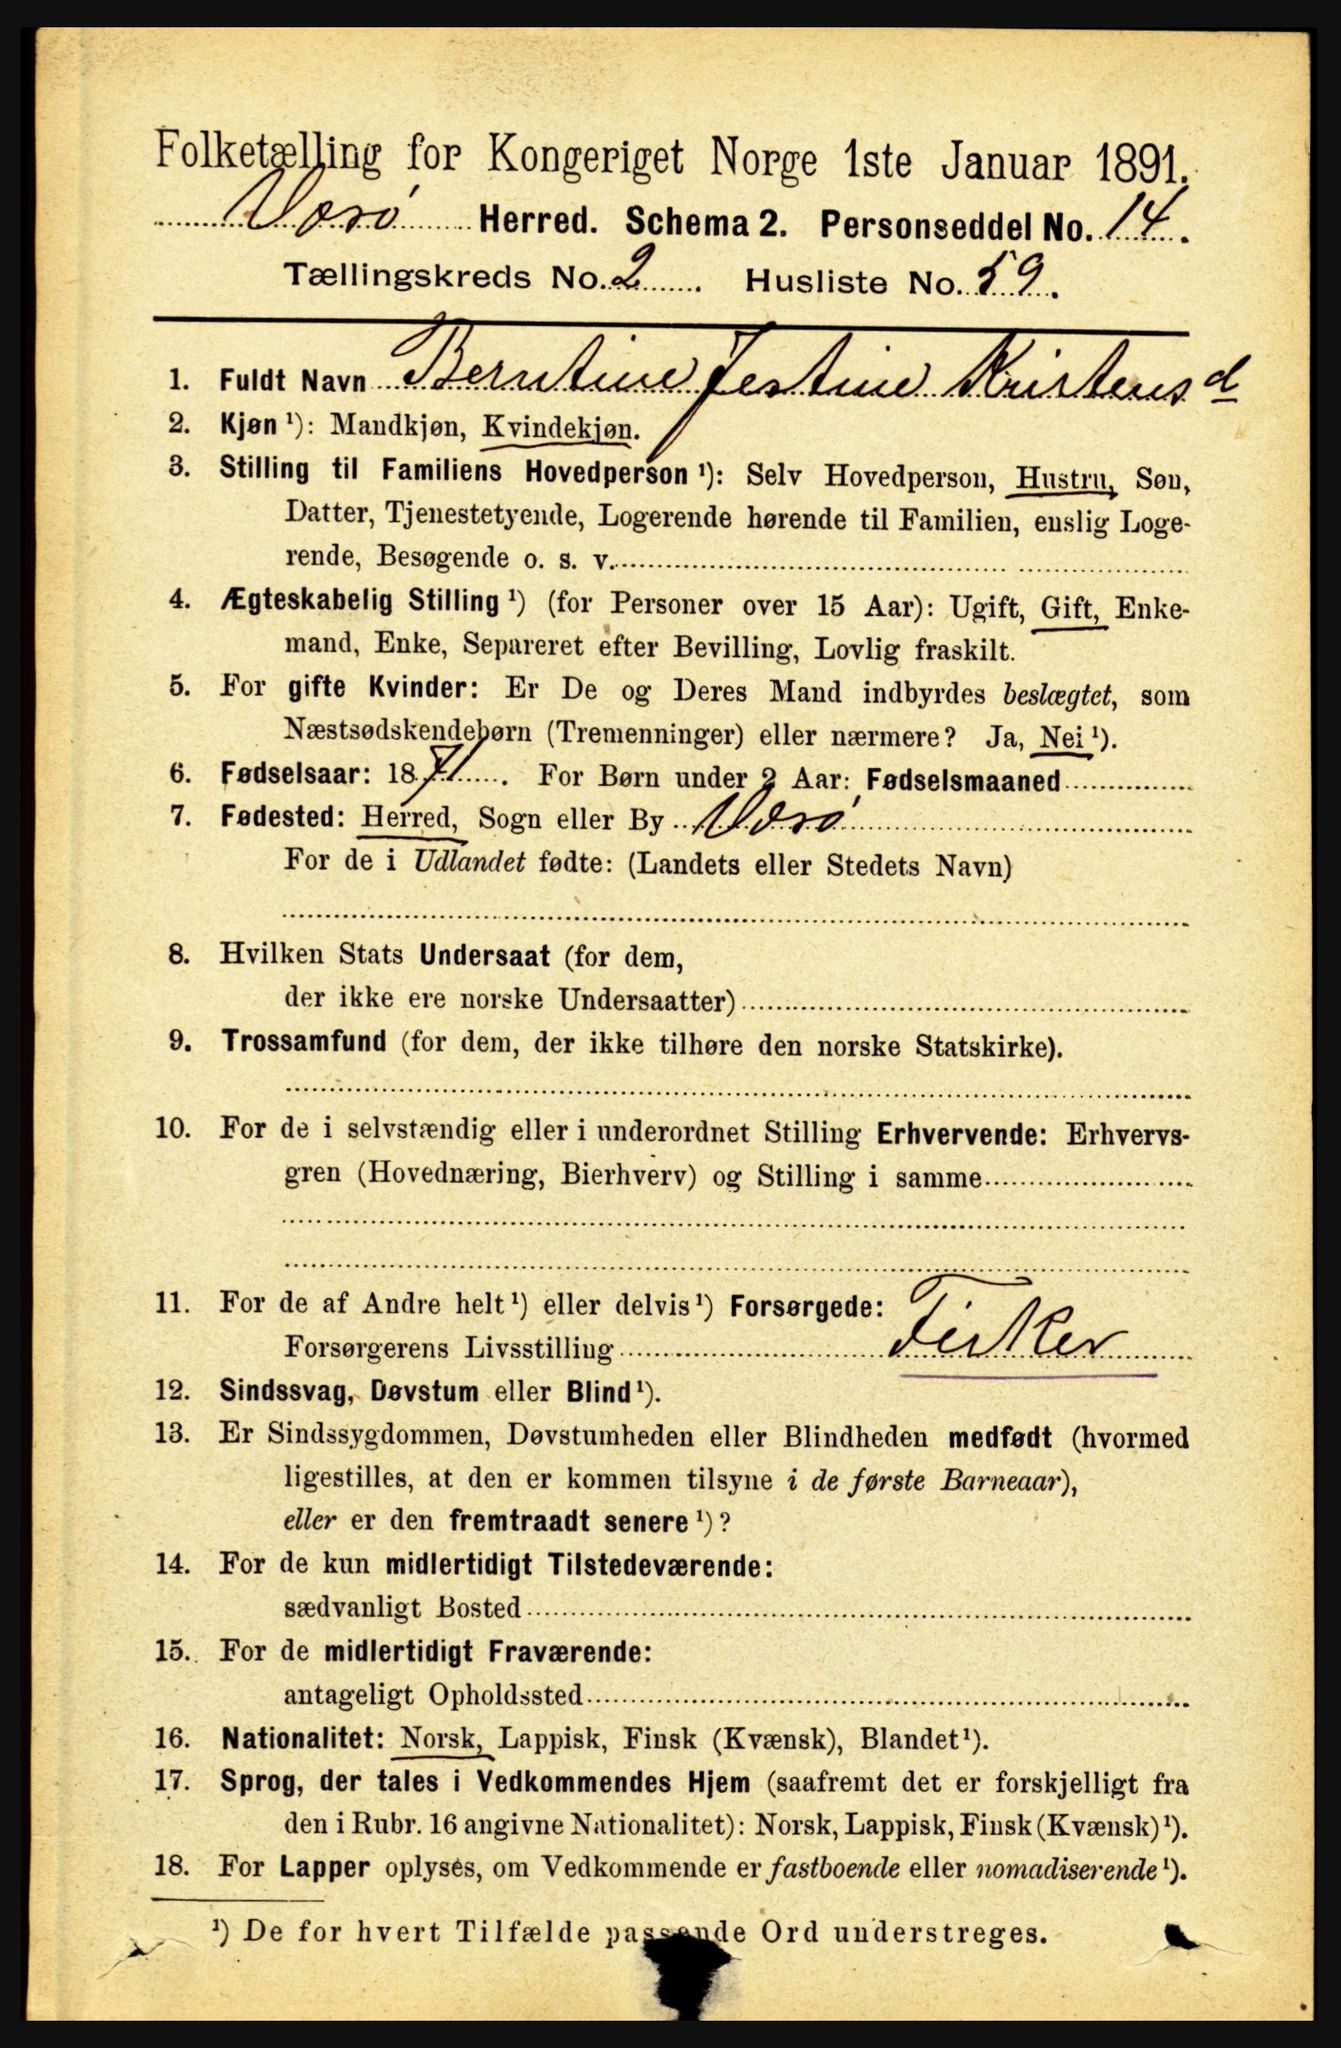 Folketælling for Kongeriget Norge 1ste Januar 1891.
Værø Herred. Schema 2. Personseddel No. 14.
Tællingskreds No. 2. Husliste No. 59.
1. Fuldt Navn Berntine Jestine Kristensd
2. Kjøn¹): Mandkjøn, Kvindekjøn.
3. Stilling til Familiens Hovedperson¹): Selv Hovedperson, Hustru, Søn,
Datter, Tjenestetyende, Logerende hørende til Familien, enslig Loge-
rende, Besøgende o. s. v.
4. Ægteskabelig Stilling¹) (for Personer over 15 Aar): Ugift, Gift, Enke-
mand, Enke, Separeret efter Bevilling, Lovlig fraskilt.
5. For gifte Kvinder: Er De og Deres Mand indbyrdes beslægtet, som
Næstsødskendebørn (Tremenninger) eller nærmere? Ja, Nei¹).
6. Fødselsaar: 1871. For Børn under 2 Aar: Fødselsmaaned
7. Fødested: Herred, Sogn eller By Værø
For de i Udlandet fødte: (Landets eller Stedets Navn)
8. Hvilken Stats Undersaat (for dem,
der ikke ere norske Undersaatter)
9. Trossamfund (for dem, der ikke tilhøre den norske Statskirke).
10. For de i selvstændig eller i underordnet Stilling Erhvervende: Erhvervs-
gren (Hovednæring, Bierhverv) og Stilling i samme
11. For de af Andre helt¹) eller delvis¹) Forsørgede:
Forsørgerens Livsstilling Fisker
12. Sindssvag, Døvstum eller Blind¹).
13. Er Sindssygdommen, Døvstumheden eller Blindheden medfødt (hvormed
ligestilles, at den er kommen tilsyne i de første Barneaar),
eller er den fremtraadt senere¹)?
14. For de kun midlertidigt Tilstedeværende:
sædvanligt Bosted
15. For de midlertidigt Fraværende:
antageligt Opholdssted
16. Nationalitet: Norsk, Lappisk, Finsk (Kvænsk), Blandet¹).
17. Sprog, der tales i Vedkommendes Hjem (saafremt det er forskjelligt fra
den i Rubr. 16 angivne Nationalitet): Norsk, Lappisk, Finsk (Kvænsk)¹).
18. For Lapper oplyses, om Vedkommende er fastboende eller nomadiserende¹).
¹) De for hvert Tilfælde passende Ord understreges.